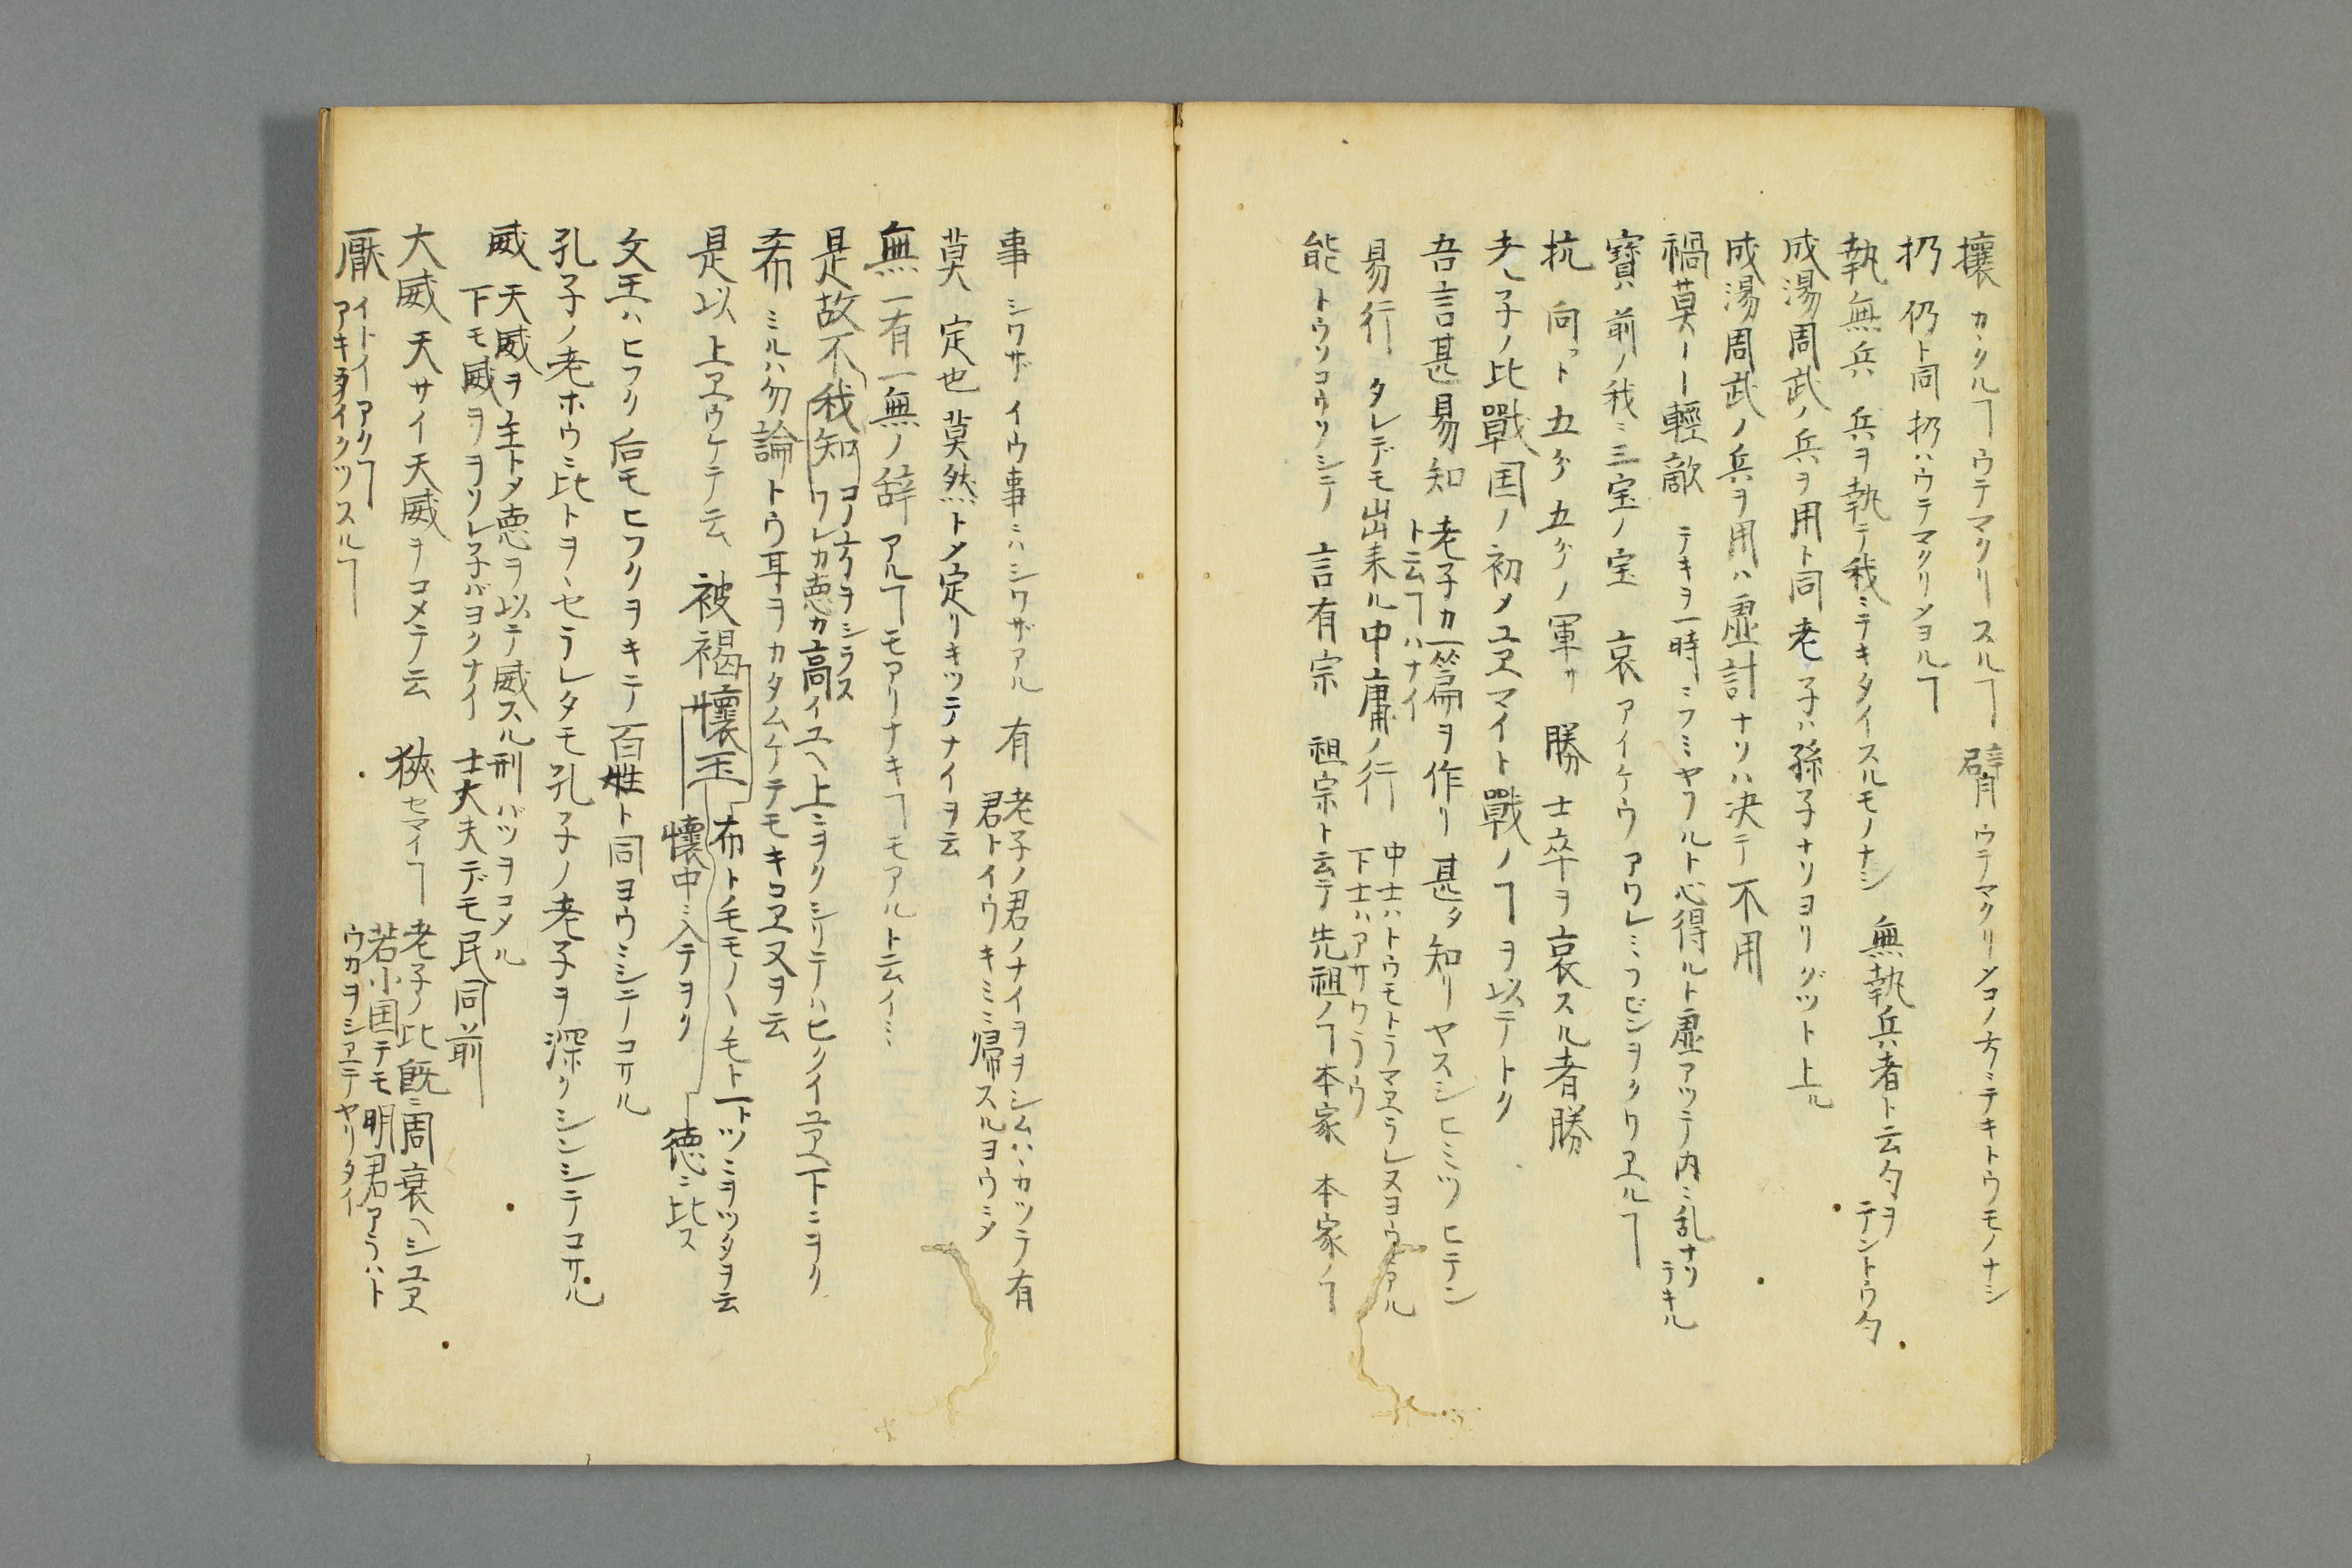 攘 カヽクルヿウテマクリスルヿ 臂 ウテマクリメコノ方ニテキトウモノナシ
扔 仍ト同 扔ハウテマクリメヨルヿ
執無兵 兵ヲ執テ我ニテキタイスルモノナシ 無執兵者ト云勺ヲ
テントウ勺
成湯周武ノ兵ヲ用ト同 老子ハ孫子ナリヨリグツト上ル
成湯周武ノ兵ヲ用ハ虚計ナソハ决テ不用
禍莫ーー輕敵 テキヲ一時ニフミヤフルト心得ルト虚アツテ内ニ乱ナリ
ラキル
寳 前ノ我ニ三宝ノ宝 哀 アイケウ アワレミフビンヲクワヱルヿ
抗 向フト 五分五分ノ軍サ 勝 士卒ヲ哀スル者勝
老子ノ比戰国ノ初メユヱマイト戰ノヿヲ以テトク
吾言甚易知 老子カ一篇ヲ作リ 甚タ知リヤスシヒミツヒテン
ト云ヿハナイ
易行 タレデモ出来ル中庸ノ行 中士ハトウモトラマヱラレヌヨウニアル
下士ハアサワラウ
能 トウソコウソシテ 言有宗 祖宗ト云テ先祖ノヿ本家 本家ノヿ
事 シワザ イウ事ニハシワザアル 有 老子ノ君ノナイヲヲシムハヽカツテ有
君トイウキミニ帰スルヨウニメ
莫 定也 莫然トメ定リキツテナイヲ云
無 一有一無ノ辞 アルヿモアリナキヿモアルト云イミ
是故不我知 コノ玄タヲシラス
ワレカ徳カ高イユヘ上ニヲクシリテハヒクイユヱ下ニヲク
希 ミルハ勿論トウ耳ヲカタムケテモキコヱヌヲ云
是以 上ヱウケテ云 被褐懐玉 布トモモノヽモト一トツミヲツタヲ云
懐中ニ入テヲク 徳ニ比ス
文王ハヒフク后モヒフクヲキテ百姓ト同ヨウニシテコサル
孔子ノ老ホウニ比トヲヽセラレタモ孔子ノ老子ヲ深クシンシテコサル
威 天威ヲ主トメ徳ヲ以テ威スル刑バツヲコメル
下モ威ヲヲソレ子バヨクナイ 士大夫デモ民同前
大威 天サイ天威ヲコメテ云 狹 セマイヿ 老子ノ比既ニ周衰ヘシユヱ
若小国テモ明君アラハト
ウカヲシヱテヤリタイ
厭 イトイアクヿ
アキタイクツスルヿ